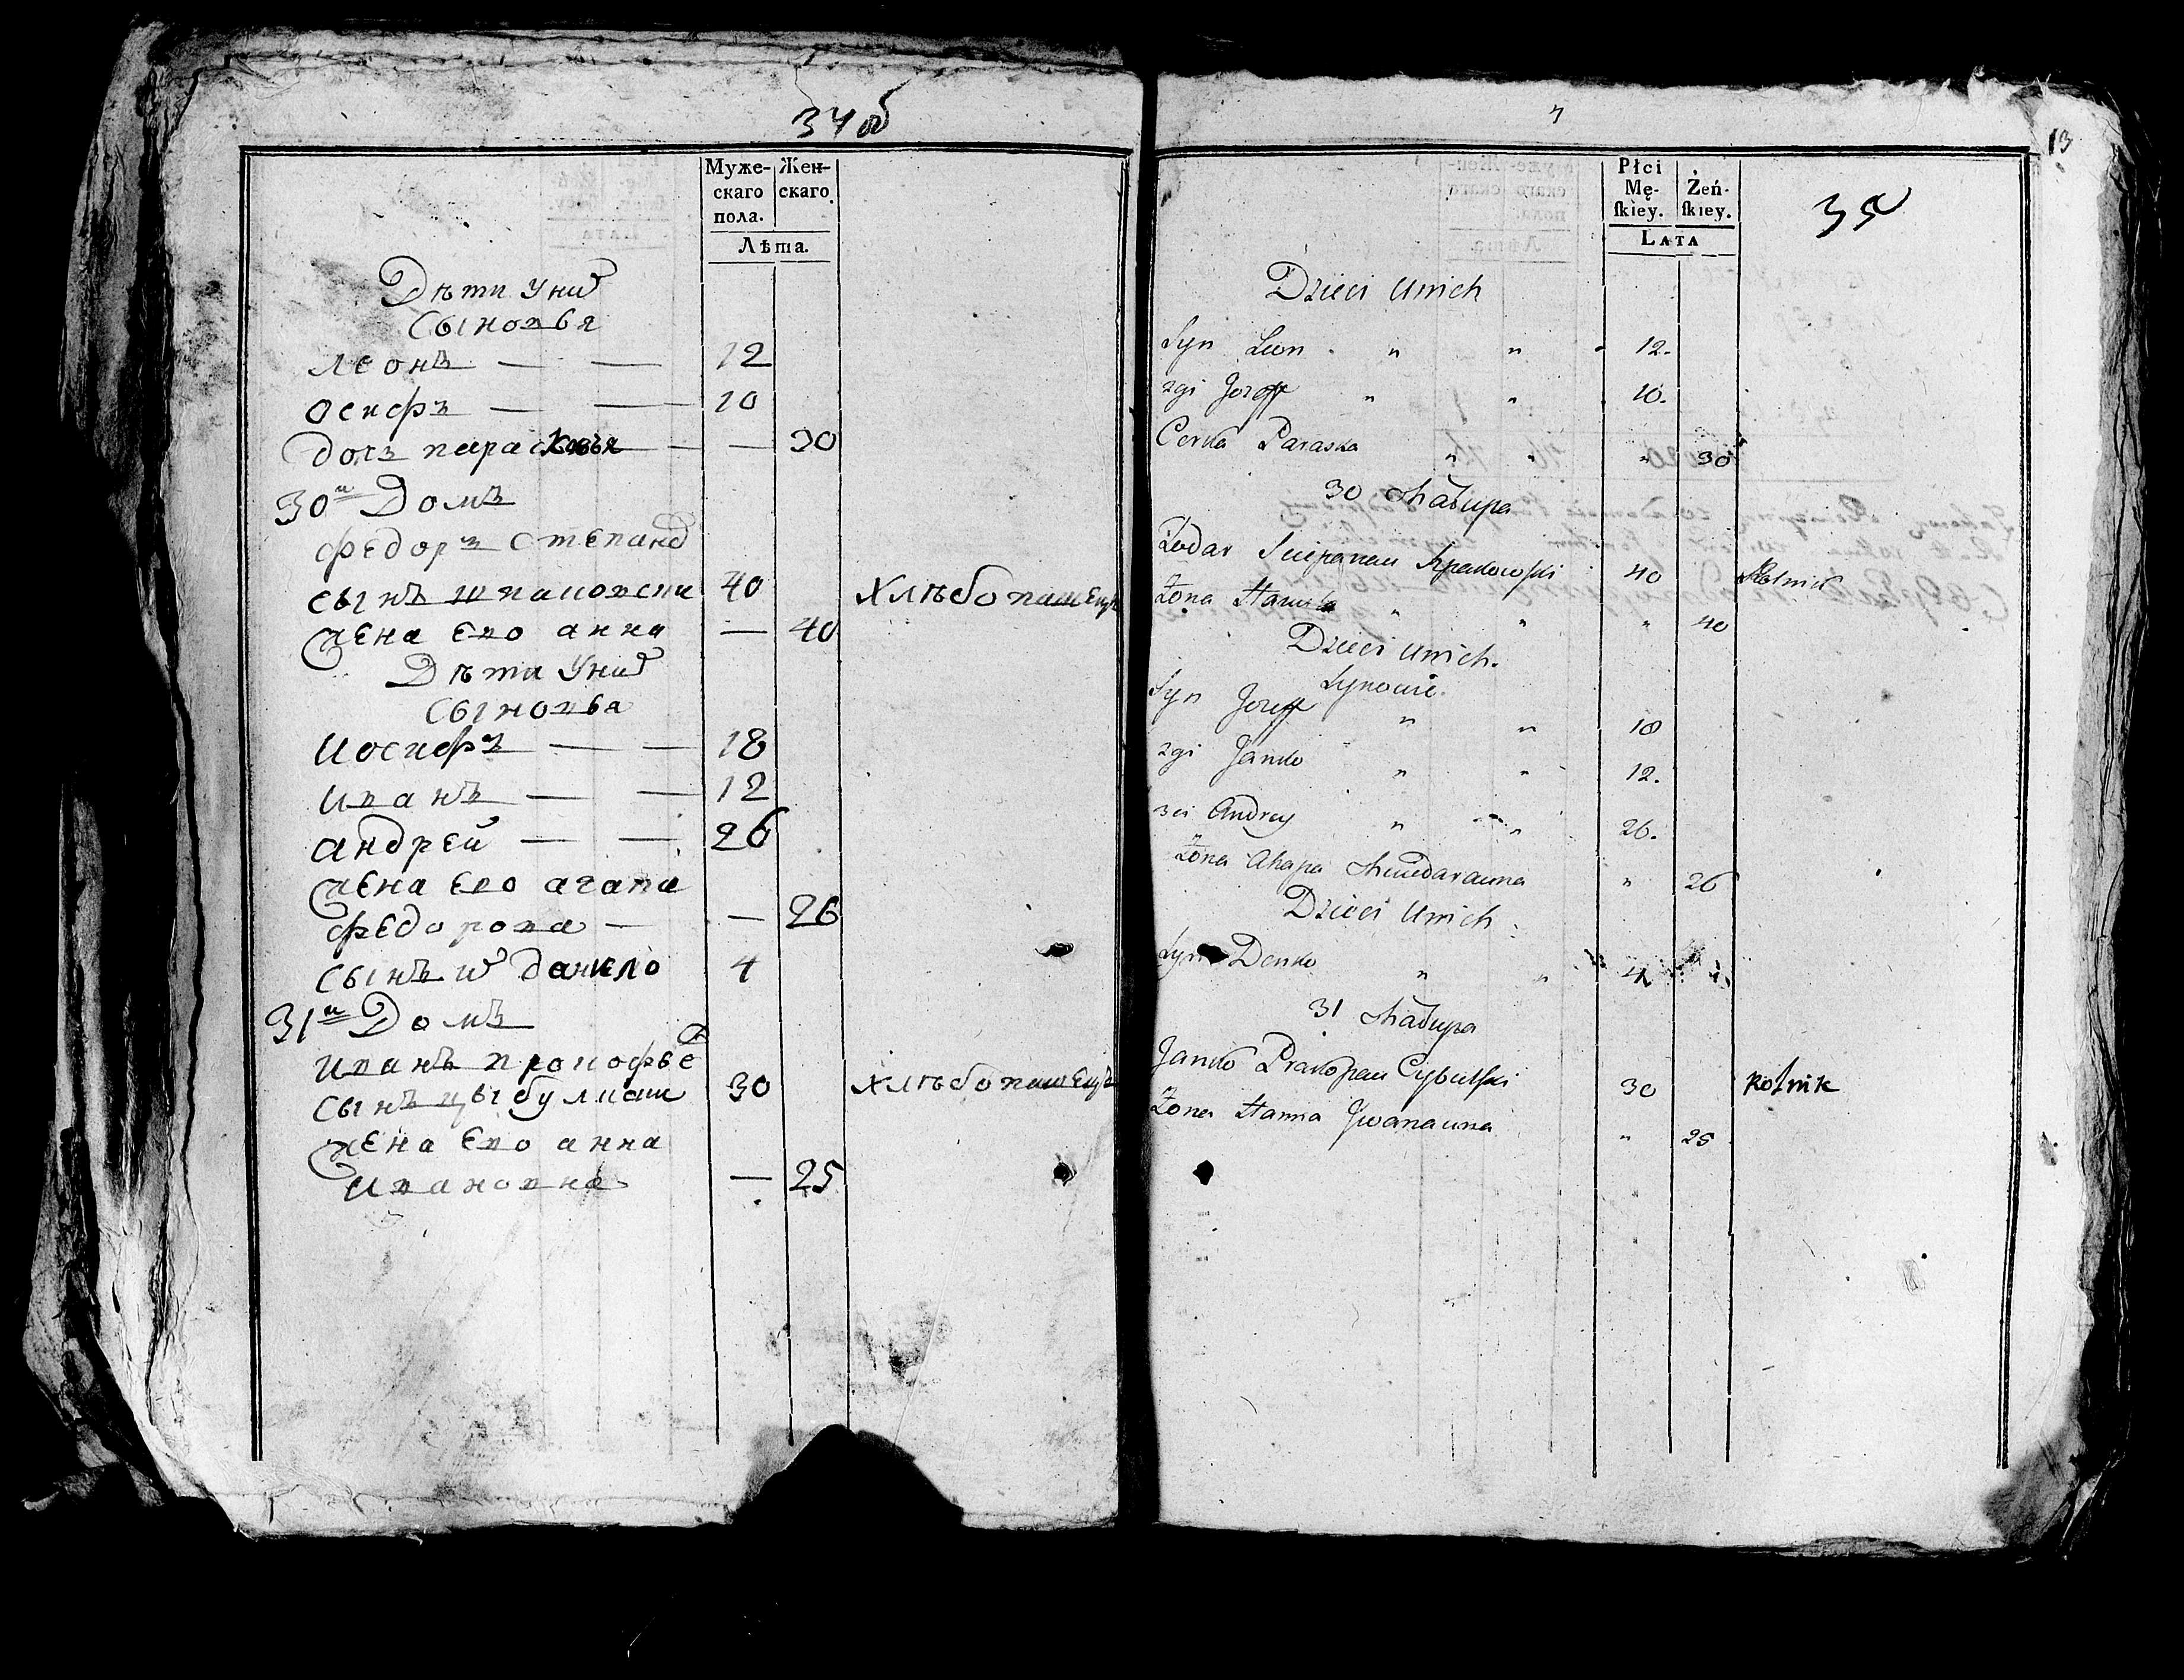 34об
Муже-
скаго
пола.
Жен-
скаго.
Лѣта.
Дѣти у них
Сыновья
Леонъ — — 12
Осифъ — — 10
Дочъ параскевья — — 30
30й Домъ
Федоръ Степанов
сынъ шпаковски 40 Хлѣбопашецъ
жена ево анна — 40
Дѣти у них
Сыновья
Иосифъ — — 18
Иванъ — — 12
Андрей — — 26
жена ево агапа
федорова — — 26
Сынъ и данило 4
31й Домъ
Иванъ прокофьев
Сынъ цыбулски 30 Хлѣбопашецъ
жена ево анна
Ивановна — 25
13
35
Płci
Mę-
ſkiey.
Żeń-
ſkiey.
LATA
Dzieci Unich
Syn Leon " " 12.
2gi Jozeff " " 10.
Corka Paraska " " " 30
30 Chałupa
Zodar Sciepanau Szpakowski 40 Rolnik
Żona Hanna " " " 40
Dzieci Unich.
Synowie.
Syn Jozeff " " 18
2gi Janko " " 12.
3ci Andrey " " 26.
Żona Ahapa Chwiedarauna " 26
Dzieci Unich
Syn Denko " " 4
31 Chałupa
Janko Prakopau Cybulski 30 Rolnik
Żona Hanna Jwanauna " 25